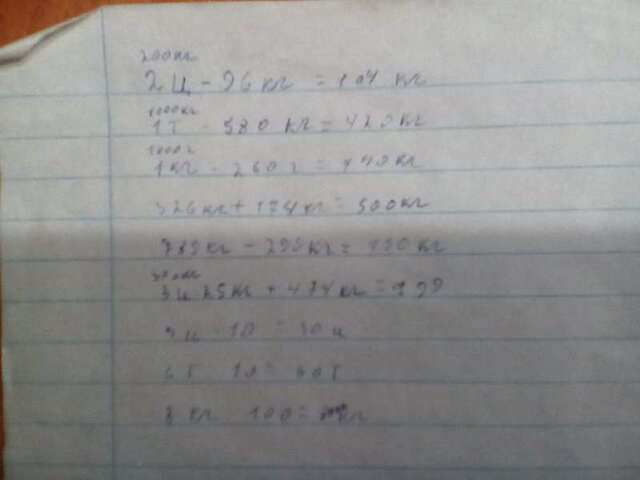 200кг
2ц - 96кг = 104 кг
1000кг
1т - 580 кг = 420кг
1000г
1кг - 260 г = 740кг
326кг + 174кг = 500кг
кг - кг = кг
300кг
3ц 25кг + 474кг = 799
3ц 10 = 30ц
6т 10 = 60т
8 кг 100 = кг